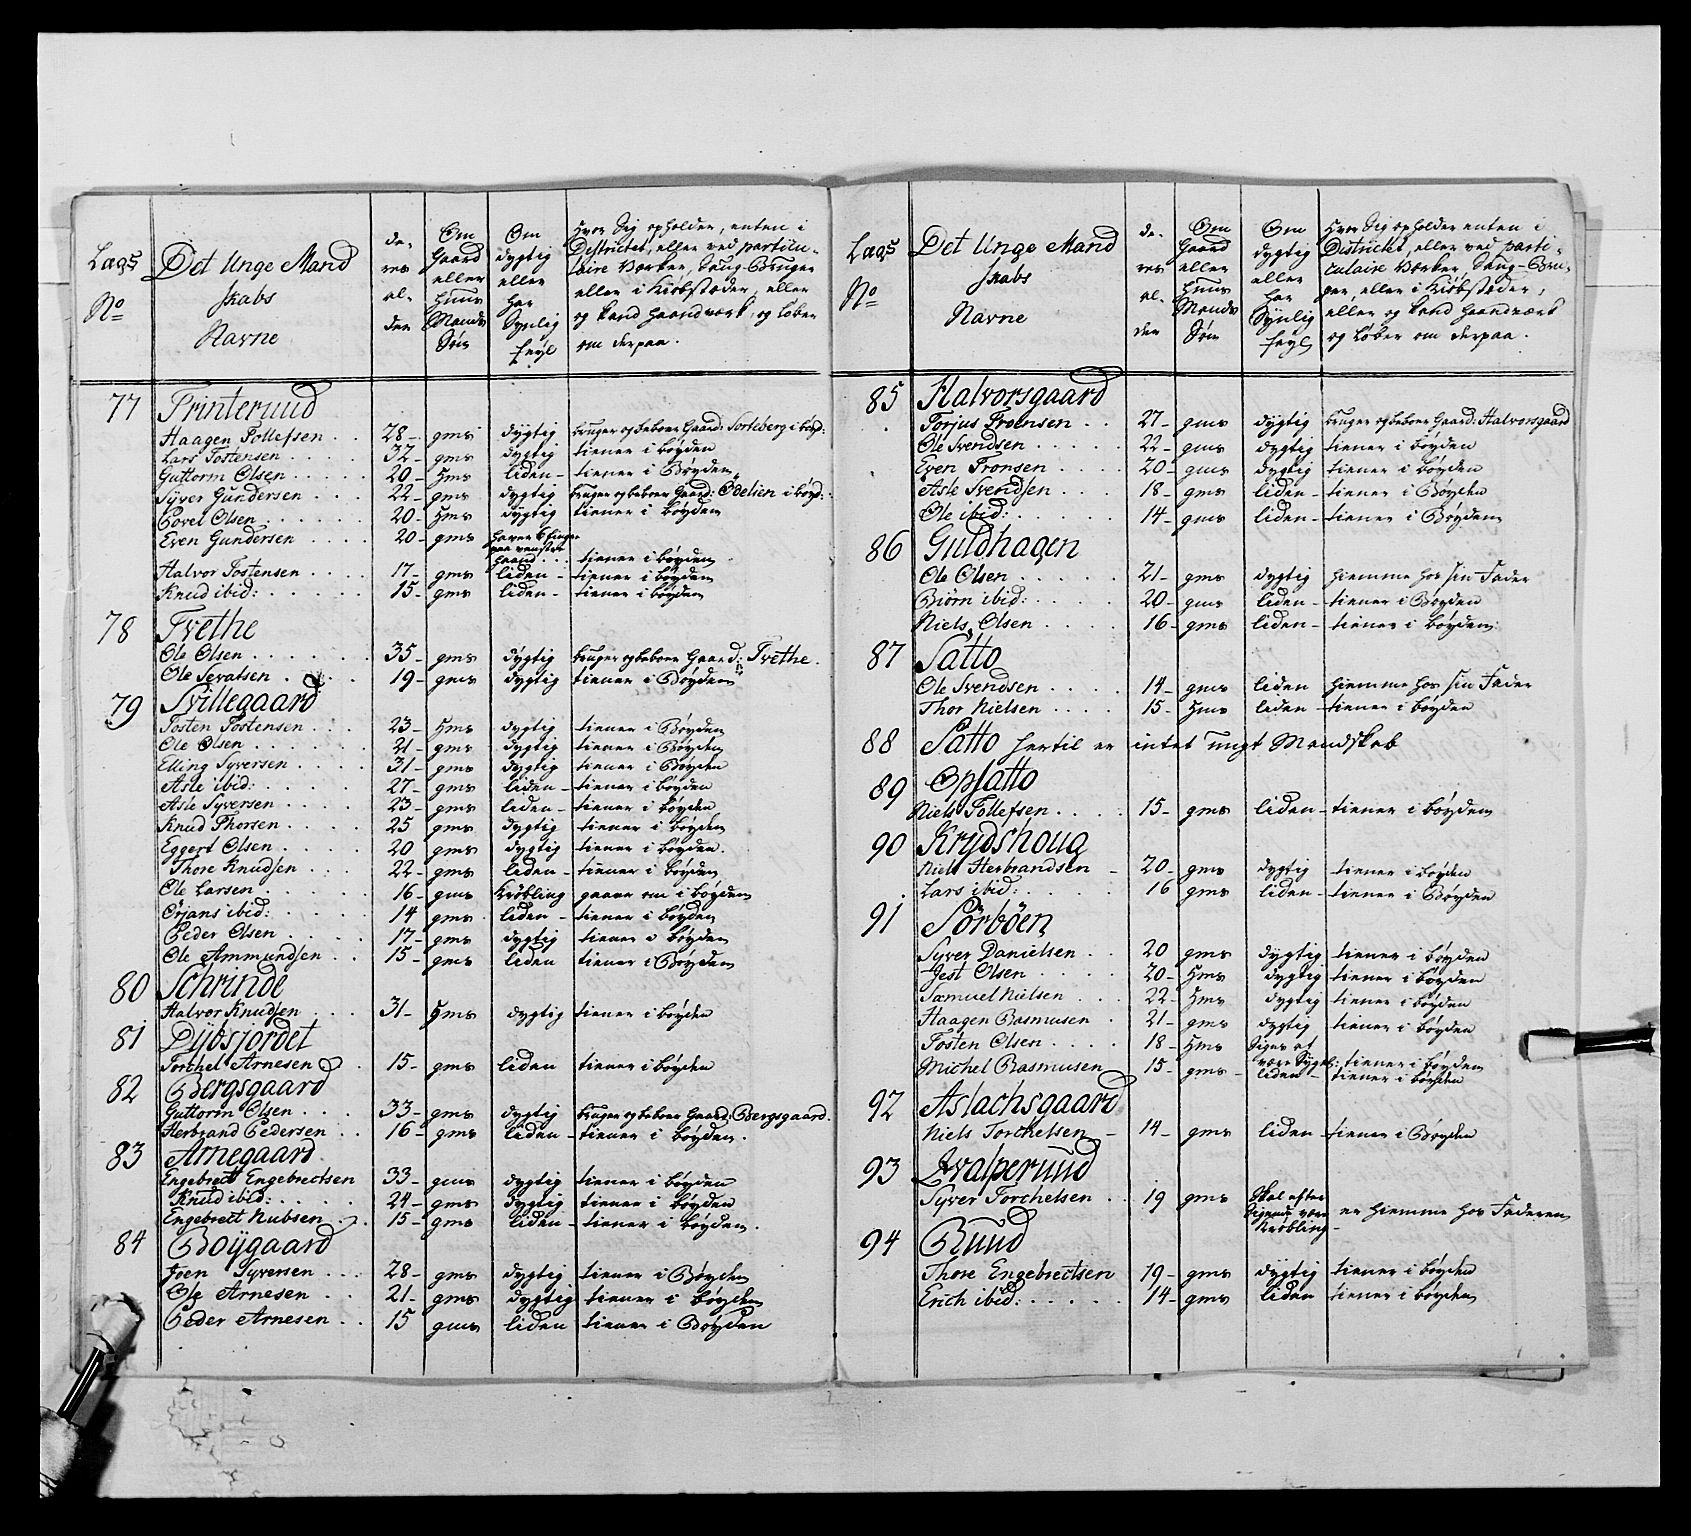 Lægs No
Det Unge Mand skabs Navne
de- res al- der
Om Gaard eller Huus Mands Søn
Om dygtig eller har Synlig feyl
Hvor Sig opholder, enten i Districtet, eller ved particu- laire Værker, Saug-Bruger eller i Kiøbstæder, eller og kand haandværk, og løber om derpaa.
77 Printeruud
Haagen Tollefsen 28 gms dygtig bruger og beboer Gaard: Sorteberg i bøyd:
Lars Tostensen 32 gms dygtig tiener i bøyden
Guttorm Olsen 20 Hms liden tiener i Bøyden
Syver Gundersen 22 gms dygtig bruger og beboer Gaard: Ødelien i bøyd:
Povel Olsen 20 Hms dygtig tiener i bøyden
Even Gundersen 20 gms haver finger paa venstre haand tiener i bøyden
Halvor Tostensen 17 gms liden tiener i bøyden
Knud ibid: 15 gms liden tiener i bøyden
78 Tvethe
Ole Olsen 35 gms dygtig bruger og beboer Gaard: Tvethe.
Ole Sevatsen 19 gms dygtig tiener i Bøyden
79 Svillegaard
Tosten Tostensen 23 Hms dygtig tiener i Bøyden
Ole Olsen 21 gms dygtig tiener i Bøyden
Elling Syversen 31 gms dygtig tiener i Bøyden
Asle ibid: 27 gms liden tiener i bøyden
Asle Syversen 23 gms liden tiener i bøyden
Knud Thorsen 25 gms dygtig tiener i bøyden
Eggert Olsen 20 gms dygtig tiener i bøyden.
Thore Knudsen 22 gms liden tiener i bøyden
Ole Larsen 16 gms Krøbling gaaer om i bøyden
Ørjans ibid: 14 gms liden tiener i bøyden
Peder Olsen 17 gms dygtig tiener i bøyden
Ole Ammundsen 15 gms liden tiener i Bøyden
80 Schrinde
Halvor Knudsen 31 Hms dygtig tiener i bøyden
81 Dybsjordet
Torchel Arnesen 15 gms liden tiener i bøyden
82 Bergsgaard
Guttorm Olsen 33 gms dygtig bruger og beboer Gaard: Bergsgaard.
Herbrand Pedersen 16 gms liden tiener i bøyden.
83 Arnegaard
Engebrett Engebrectsen 33 gms dygtig tiener i bøyden
Knud ibid: 24 gms dygtig tiener i bøyden
Engebrett Nubsen 15 gms liden tiener i bøyden.
84 Boygaard
Joen Syversen 28 gms dygtig tiener i Bøyden
Ole Arnesen 21 gms dygtig tiener i bøyden
Peder Arnesen 15 gms liden tiener i Bøyden
Lægs No
Det Unge Mand skabs Navne
de- res al- der
Om Gaard eller Huus Mands Søn
Om dygtig eller har Synlig feyl
Hvor Sig opholder enten i Districtet, eller ved parti- culaire Værker, Saug-Bru- ger, eller i Kiøbstæder, eller og kand haandværk og løber om derpaa.
85 Halvorsgaard
Torjus Tronsen 27 gms dygtig bruger og beboer Gaard: Halvorsgaard
Ole Svendsen 22 gms dygtig tiener i bøyden
Even Tronsen 20 gms dygtig tiener i bøyden
Asle Svendsen 18 gms liden tiener i Bøyden
Ole ibid: 14 gms liden tiener i Bøyden
86 Guldhagen
Ole Olsen 21 gms dygtig hiemme hos sin Fader
Biørn ibid: 20 gms liden tiener i Bøyden
Niels Olsen 16 gms liden tiener i bøyden
87 Satto
Ole Svendsen 14 gms liden hiemme hos sin Fader
Thor Nielsen 15 Hms liden tiener i bøyden
88 Satto hertil er intet Ungt Mandskab
89 Opsatto
Niels Tollefsen 15 gms liden tiener i bøyden
90 Krydshoug
Niels Herbrandsen 20 gms dygtig tiener i bøyden
Lars ibid: 16 gms liden tiener i Bøyden
91 Sørbøen
Syver Danielsen 20 gms dygtig tiener i bøyden
Jest Olsen 20 Hms dygtig tiener i bøyden
Samuel Nielsen 22 Hms dygtig tiener i bøyden
Haagen Rasmusen 21 gms dygtig tiener i bøyden
Tosten Olsen 18 Hms Siges at være Sygel: tiener i bøyden
Michel Rasmusen 15 gms liden tiener i bøyden
92 Aslachsgaard
Niels Torchelsen 14 gms liden tiener i Bøyden
93 Hvalperuud
Syver Torchelsen 19 gms Skal efter Sigende være Krøbling er hiemme hos Faderen
94 Ruud
Thore Engebrectsen 19 gms dygtig tiener i bøyden
Erich ibid: 14 gms liden tiener i bøyden